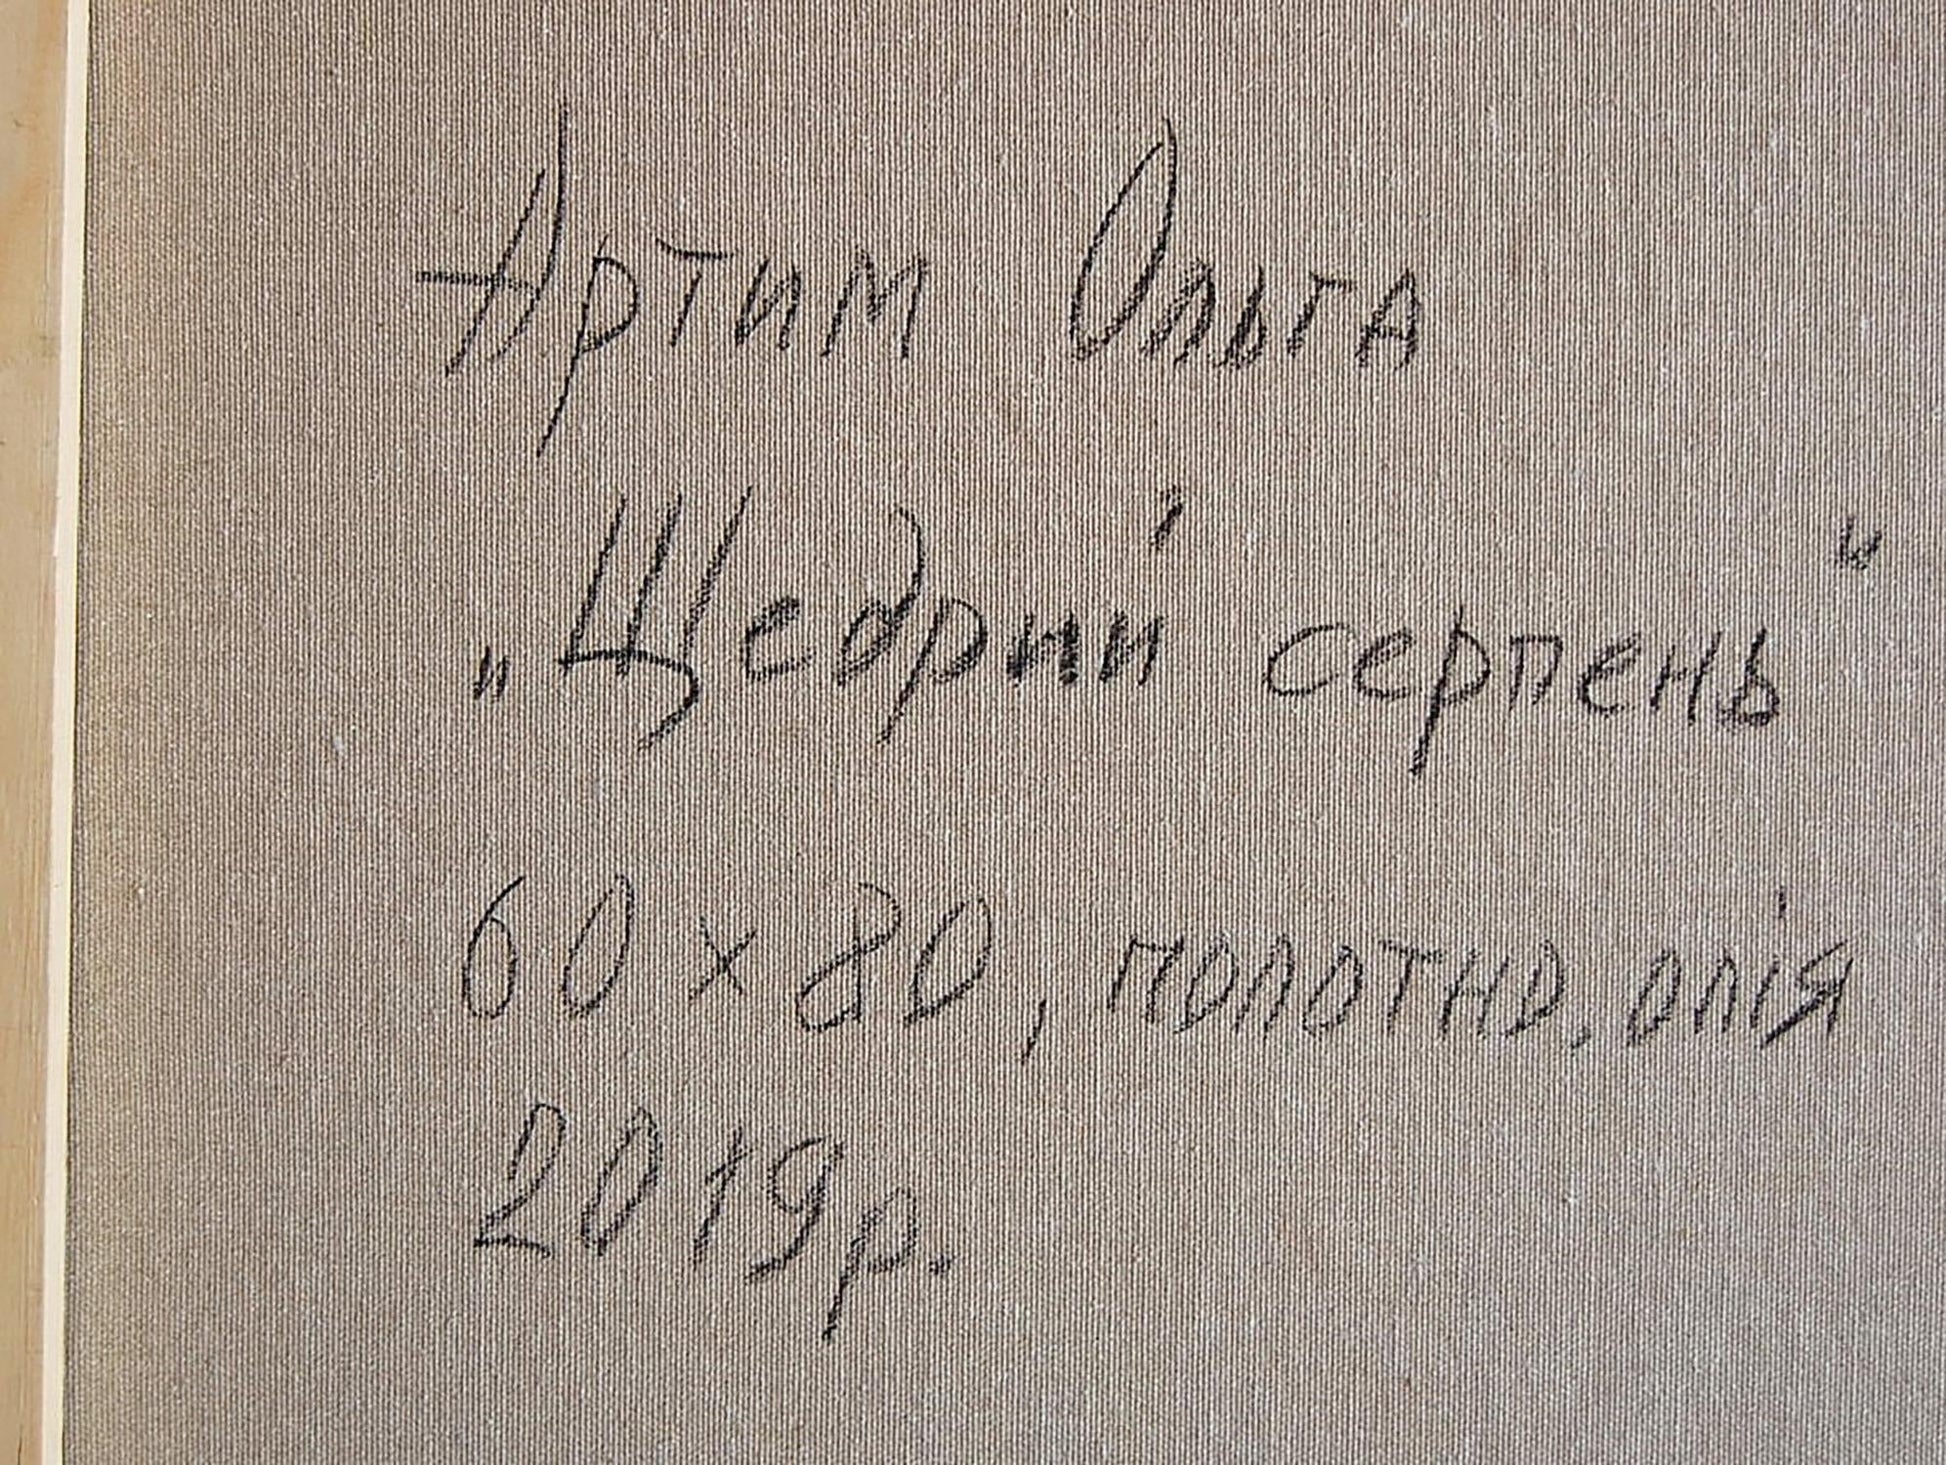 Артим Ольга
„Щедрий серпень"
60 х 80, полотно, олія
2019р.